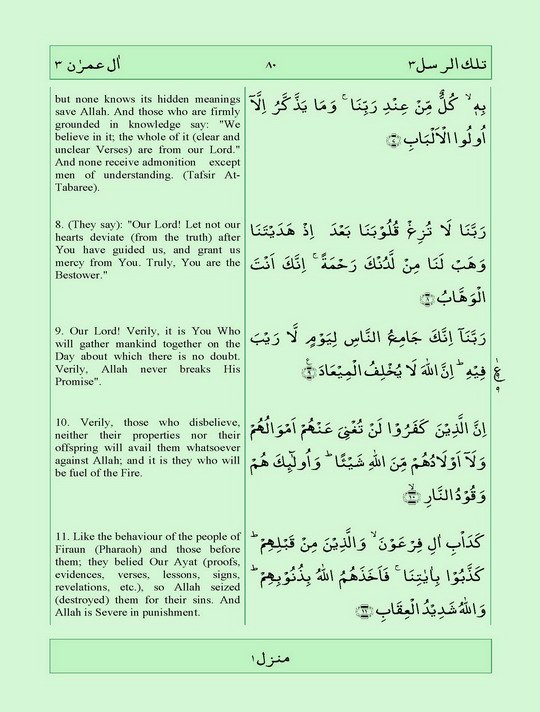 تلك الرسل٣ ٨٠ اٰل عمرٰن ٣
but none knows its hidden meanings
save Allah. And those who are firmly
grounded in knowledge say: "We
believe in it; the whole of it (clear and
unclear Verses) are from our Lord."
And none receive admonition except
men of understanding. (Tafsir At-
Tabaree).
بِهٖ ۙ كُلٌّ مِّنْ عِنْدِ رَبِّنَا ۚ وَمَا يَذَّكَّرُ اِلَّاۤ
اُولُوا الْاَلْبَابِ ﴿٧﴾
8. (They say): "Our Lord! Let not our
hearts deviate (from the truth) after
You have guided us, and grant us
mercy from You. Truly, You are the
Bestower."
رَبَّنَا لَا تُزِغْ قُلُوْبَنَا بَعْدَ اِذْ هَدَيْتَنَا
وَهَبْ لَنَا مِنْ لَّدُنْكَ رَحْمَةً ۚ اِنَّكَ اَنْتَ
الْوَهَّابُ ﴿٨﴾
9. Our Lord! Verily, it is You Who
will gather mankind together on the
Day about which there is no doubt.
Verily, Allah never breaks His
Promise".
رَبَّنَاۤ اِنَّكَ جَامِعُ النَّاسِ لِيَوْمٍ لَّا رَيْبَ
فِيْهِ ؕ اِنَّ اللّٰهَ لَا يُخْلِفُ الْمِيْعَادَ ﴿٩﴾
10. Verily, those who disbelieve,
neither their properties nor their
offspring will avail them whatsoever
against Allah; and it is they who will
be fuel of the Fire.
اِنَّ الَّذِيْنَ كَفَرُوْا لَنْ تُغْنِىَ عَنْهُمْ اَمْوَالُهُمْ
وَلَاۤ اَوْلَادُهُمْ مِّنَ اللّٰهِ شَيْئًا ؕ وَاُولٰٓئِكَ هُمْ
وَقُوْدُ النَّارِ ۙ﴿١٠﴾
11. Like the behaviour of the people of
Firaun (Pharaoh) and those before
them; they belied Our Ayat (proofs,
evidences, verses, lessons, signs,
revelations, etc.), so Allah seized
(destroyed) them for their sins. And
Allah is Severe in punishment.
كَدَاْبِ اٰلِ فِرْعَوْنَ ۙ وَالَّذِيْنَ مِنْ قَبْلِهِمْ ؕ
كَذَّبُوْا بِاٰيٰتِنَا ۚ فَاَخَذَهُمُ اللّٰهُ بِذُنُوْبِهِمْ ؕ
وَاللّٰهُ شَدِيْدُ الْعِقَابِ ﴿١١﴾
منزل١